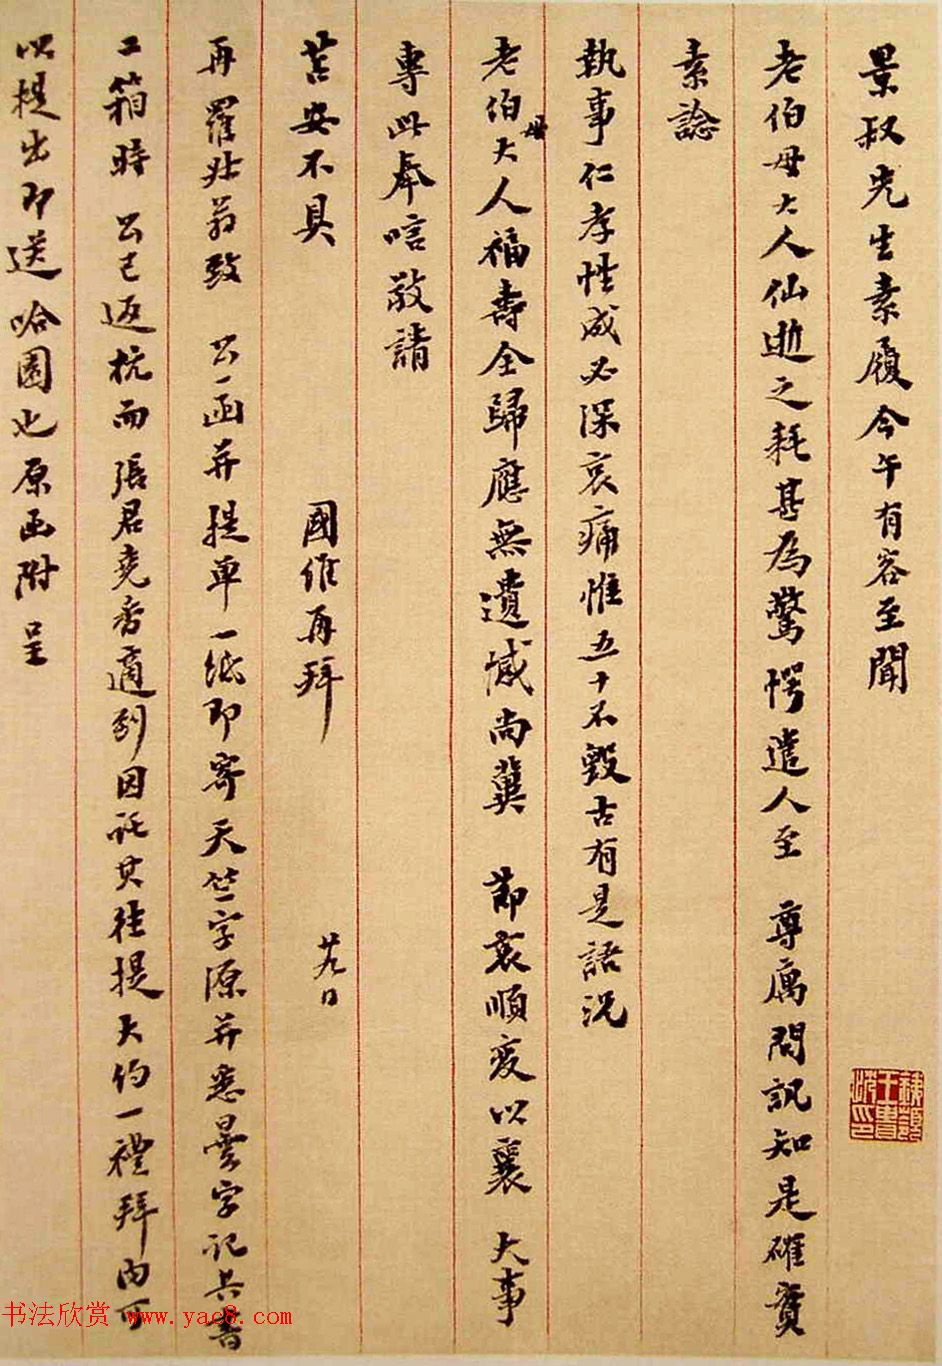 景叔先生素履今午有客至聞
老伯母大人仙逝之耗甚為驚愕遣人至 尊厲問訊知是確實
素諗
執事仁孝性成必深哀痛惟五十不毀古有是語況
老伯母大人福壽全歸應無遺憾尚冀 節哀順變以襄 大事
專此奉唁敬請
苫安不具
國維再拜 廿九日
再羅叔翁致 公一函并提單一紙即寄天竺字源并悉曇字記共書
二箱時 公已返杭而張君堯香適到因託其往提大約一禮拜內可
以提出即送哈園也原函附呈
书法欣赏 www.yac8.com